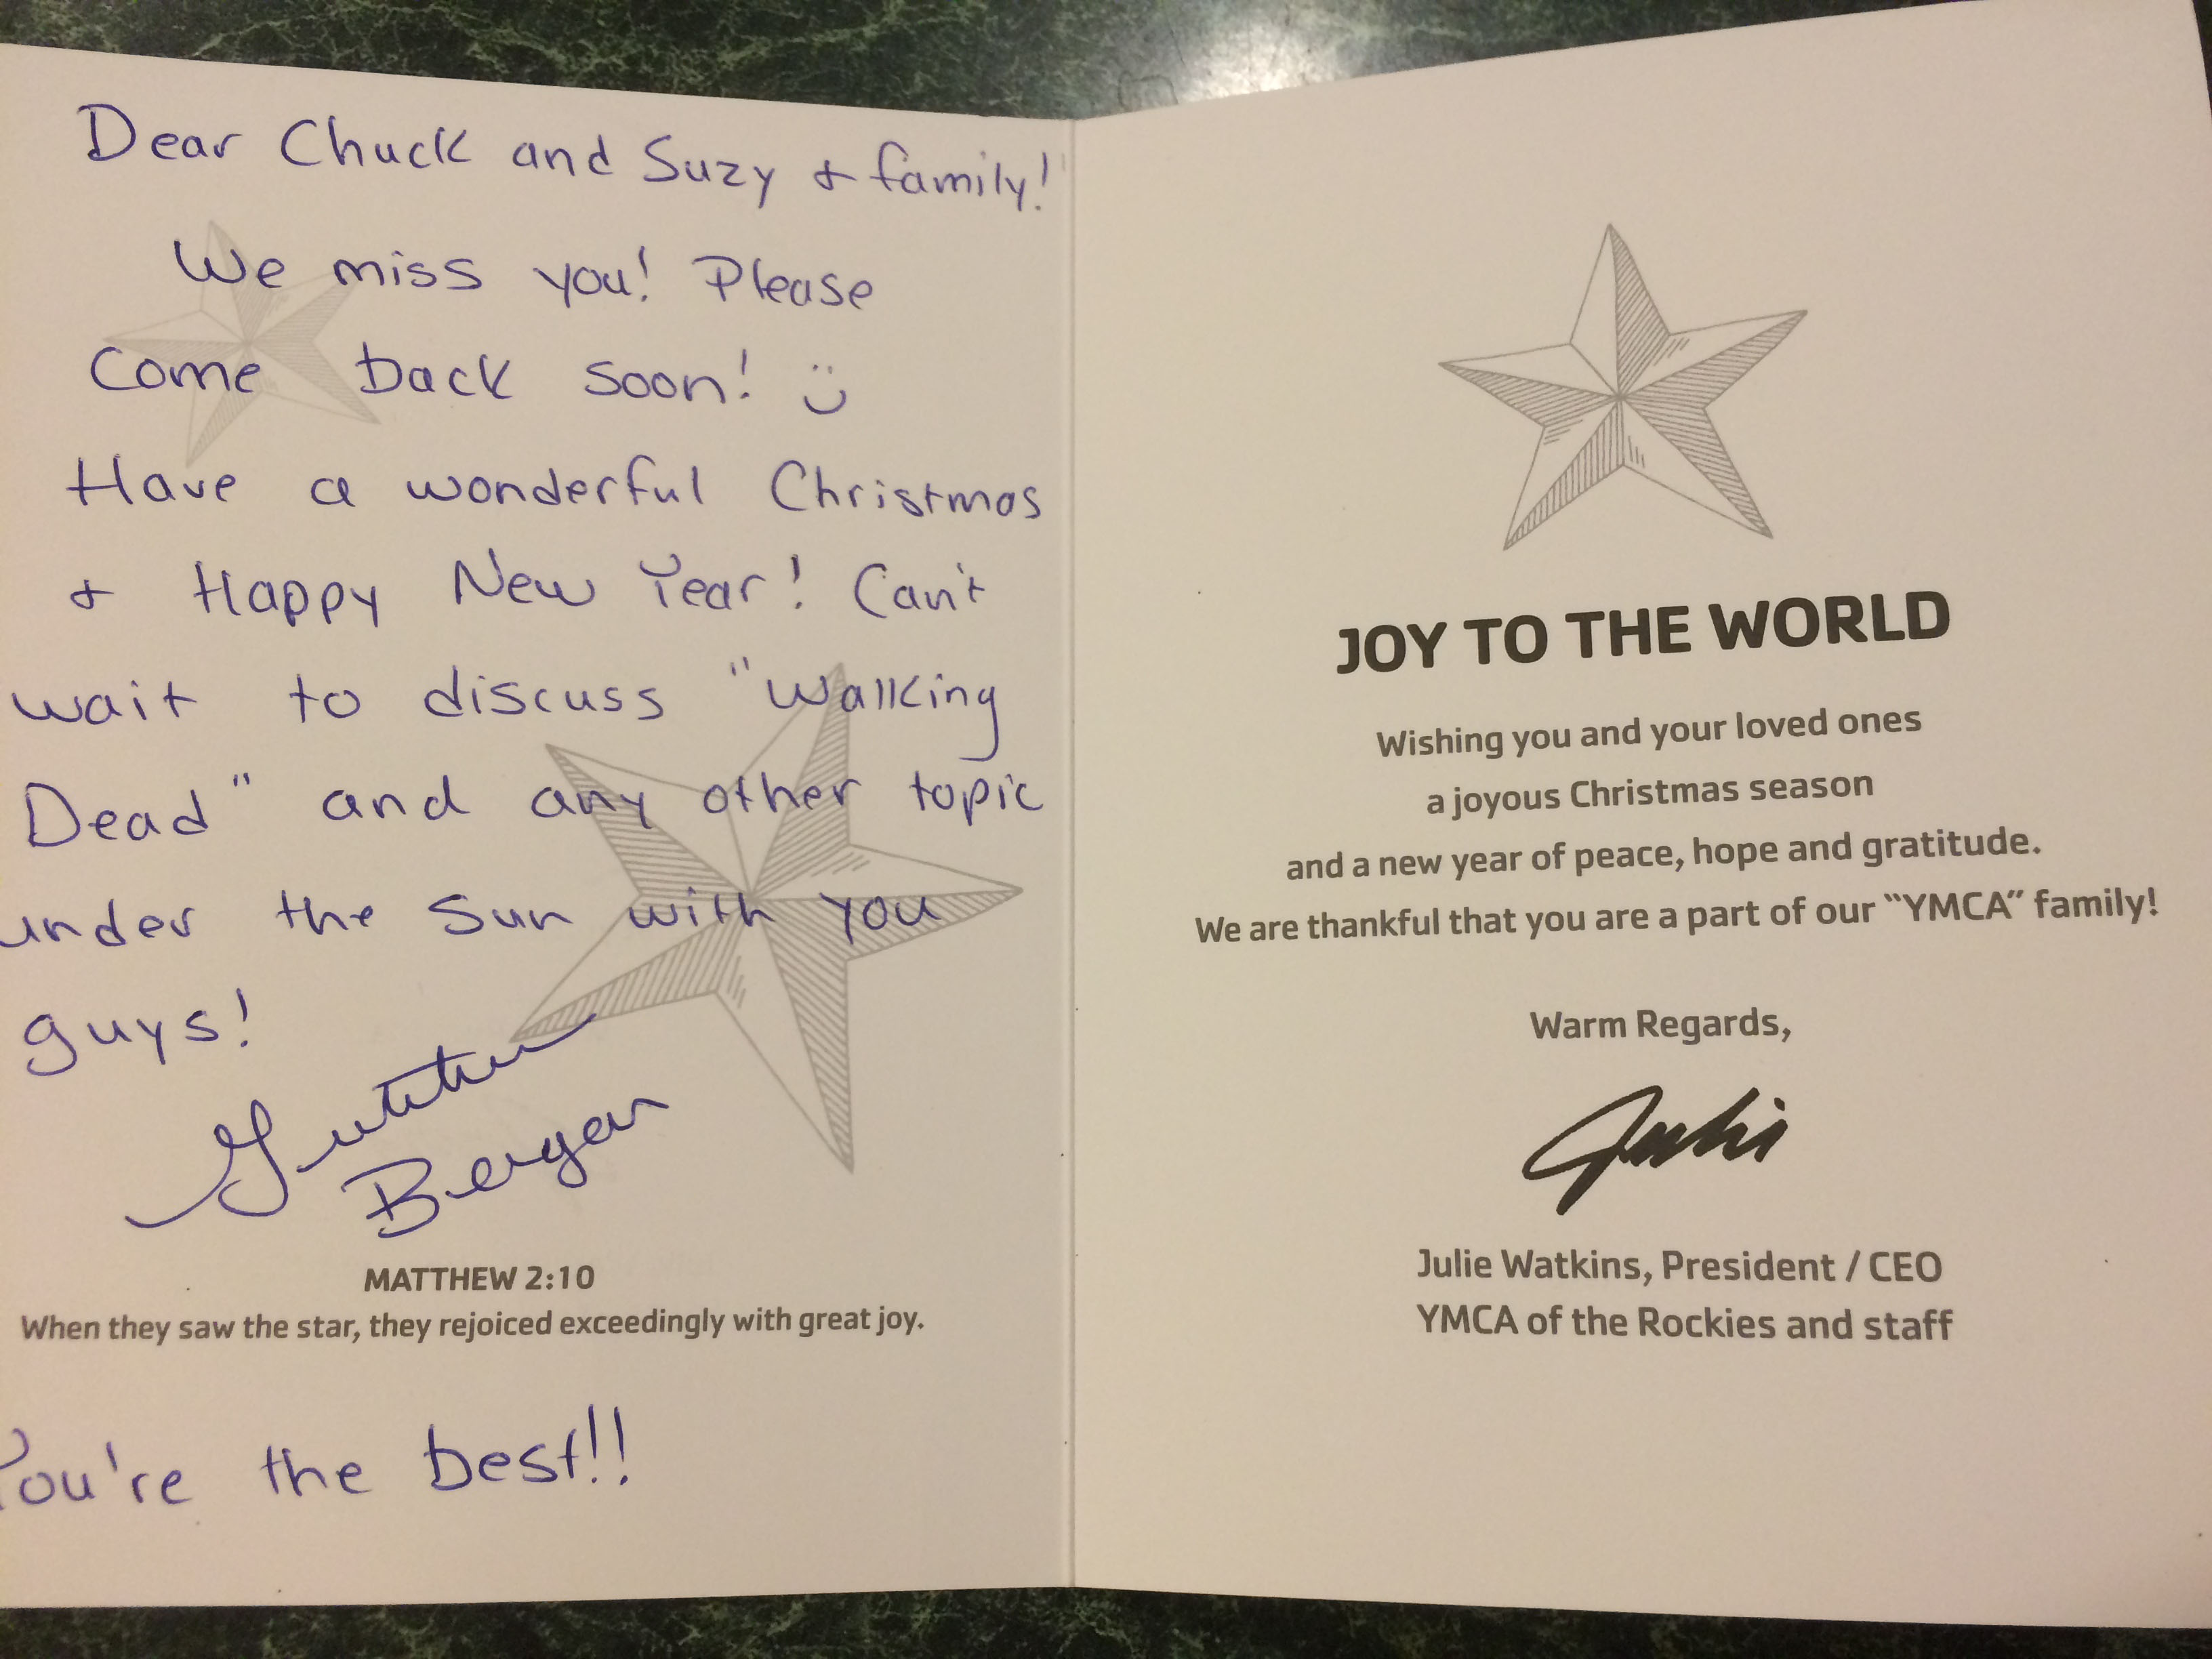 Dear Chuck and Suzy & family!
We miss you! Please
Come back soon! :)
Have a wonderful Christmas
& Happy New Year! Can't
wait to discuss "Walking
Dead" and any other topic
under the sun with you
guys!
Bergen
MATTHEW 2:10
When they saw the star, they rejoiced exceedingly with great joy.
You're the best!!
JOY TO THE WORLD
Wishing you and your loved ones
a joyous Christmas season
and a new year of peace, hope and gratitude.
We are thankful that you are a part of our "YMCA" family!
Warm Regards,
Julie
Julie Watkins, President / CEO
YMCA of the Rockies and staff